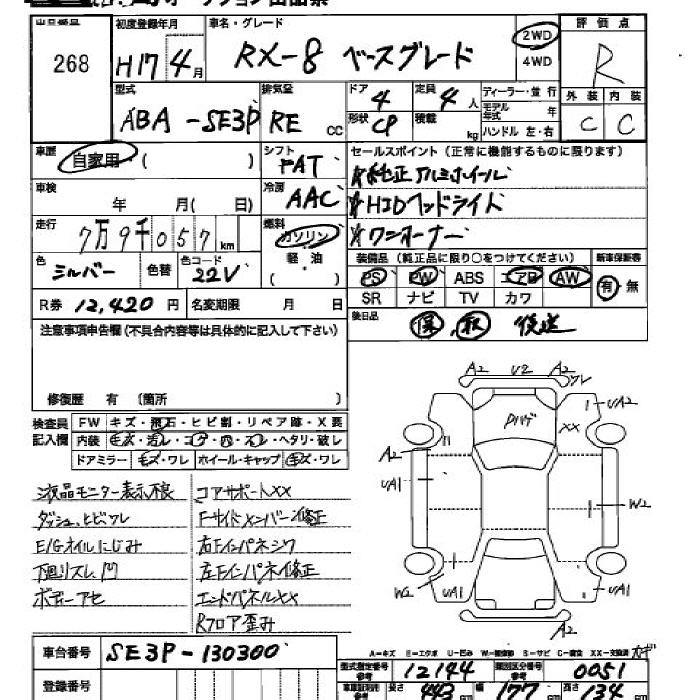 出品番号 初度登録年月 車名・グレード 評価点
268 H17年 4月 RX-8 ベースグレード 2WD 4WD R
型式 排気量 ドア 定員 ディーラー・並行 外装 内装
ABA-SE3P RE CC 4 4人 モデル年式 年 C C
形状 CP 積載 kg ハンドル 左・右
車歴 自家用 ( ) シフト FAT セールスポイント(正常に機能するものに限ります)
車検 年 月( 日) 冷房 AAC 純正アルミホイール
HIDヘッドライト
走行 7万9千057km 燃料 ガソリン 軽油 ( ) ワンオーナー
色 シルバー 色替 色コード 22V 装備品(純正品に限り○をつけてください) 新車保証書
PS PW ABS エアB AW 有・無
R券 12,420円 名変期限 月 日 SR ナビ TV カワ
注意事項申告欄(不具合内容等は具体的に記入して下さい) 後日品 保 取 後送
修復歴 有 (箇所 )
検査員記入欄 FW キズ・飛石・ヒビ割・リペア跡・X要
内装 ヘタリ・破レ
ドアミラー キズ・ワレ ホイール・キャップ キズ・ワレ
液晶モニター表示不良 コアサポートXX
ダッシュヒビワレ Fサイドメンバー修正
E/Gオイルにじみ 右Fインパネシワ
下廻リスレ凹 左Fインパネ修正
ボデーアセ エンドパネルXX
Rフロア歪み
A2 U2 A2 ワレ
UA2
Pハゲ XX
A2
UA1 W2
W2 UA1 UA1
A2
A-キズ E-エクボ U-凹み W-補修跡 S-サビ C-腐食 XX-交換済
車台番号 SE3P-130300 型式指定番号 参考 12144 類別区分番号 参考 0051
登録番号 長さ 443 cm 幅 177 cm 高さ 134 cm